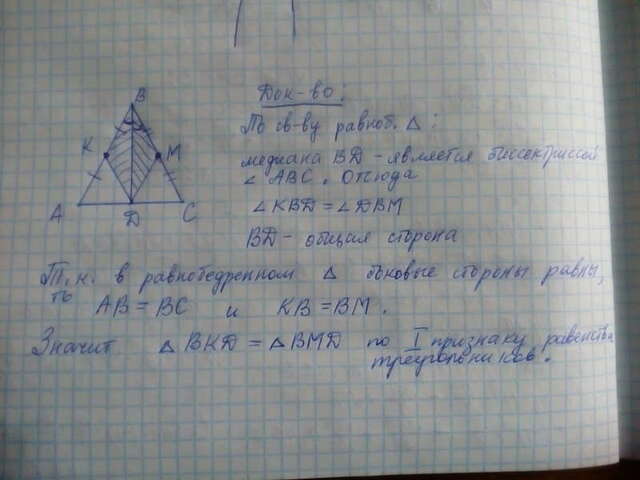 B
K
M
A
D
C
Док-во:
По св-ву равноб. △:
медиана BD - является биссектриссой
∠ ABC. Отсюда
∠KBD = ∠DBM
BD - общая сторона
Т.к. в равнобедренном △ боковые стороны равны,
то AB = BC и KB = BM.
Значит △ BKD = △ BMD по I признаку равенства
треугольников.